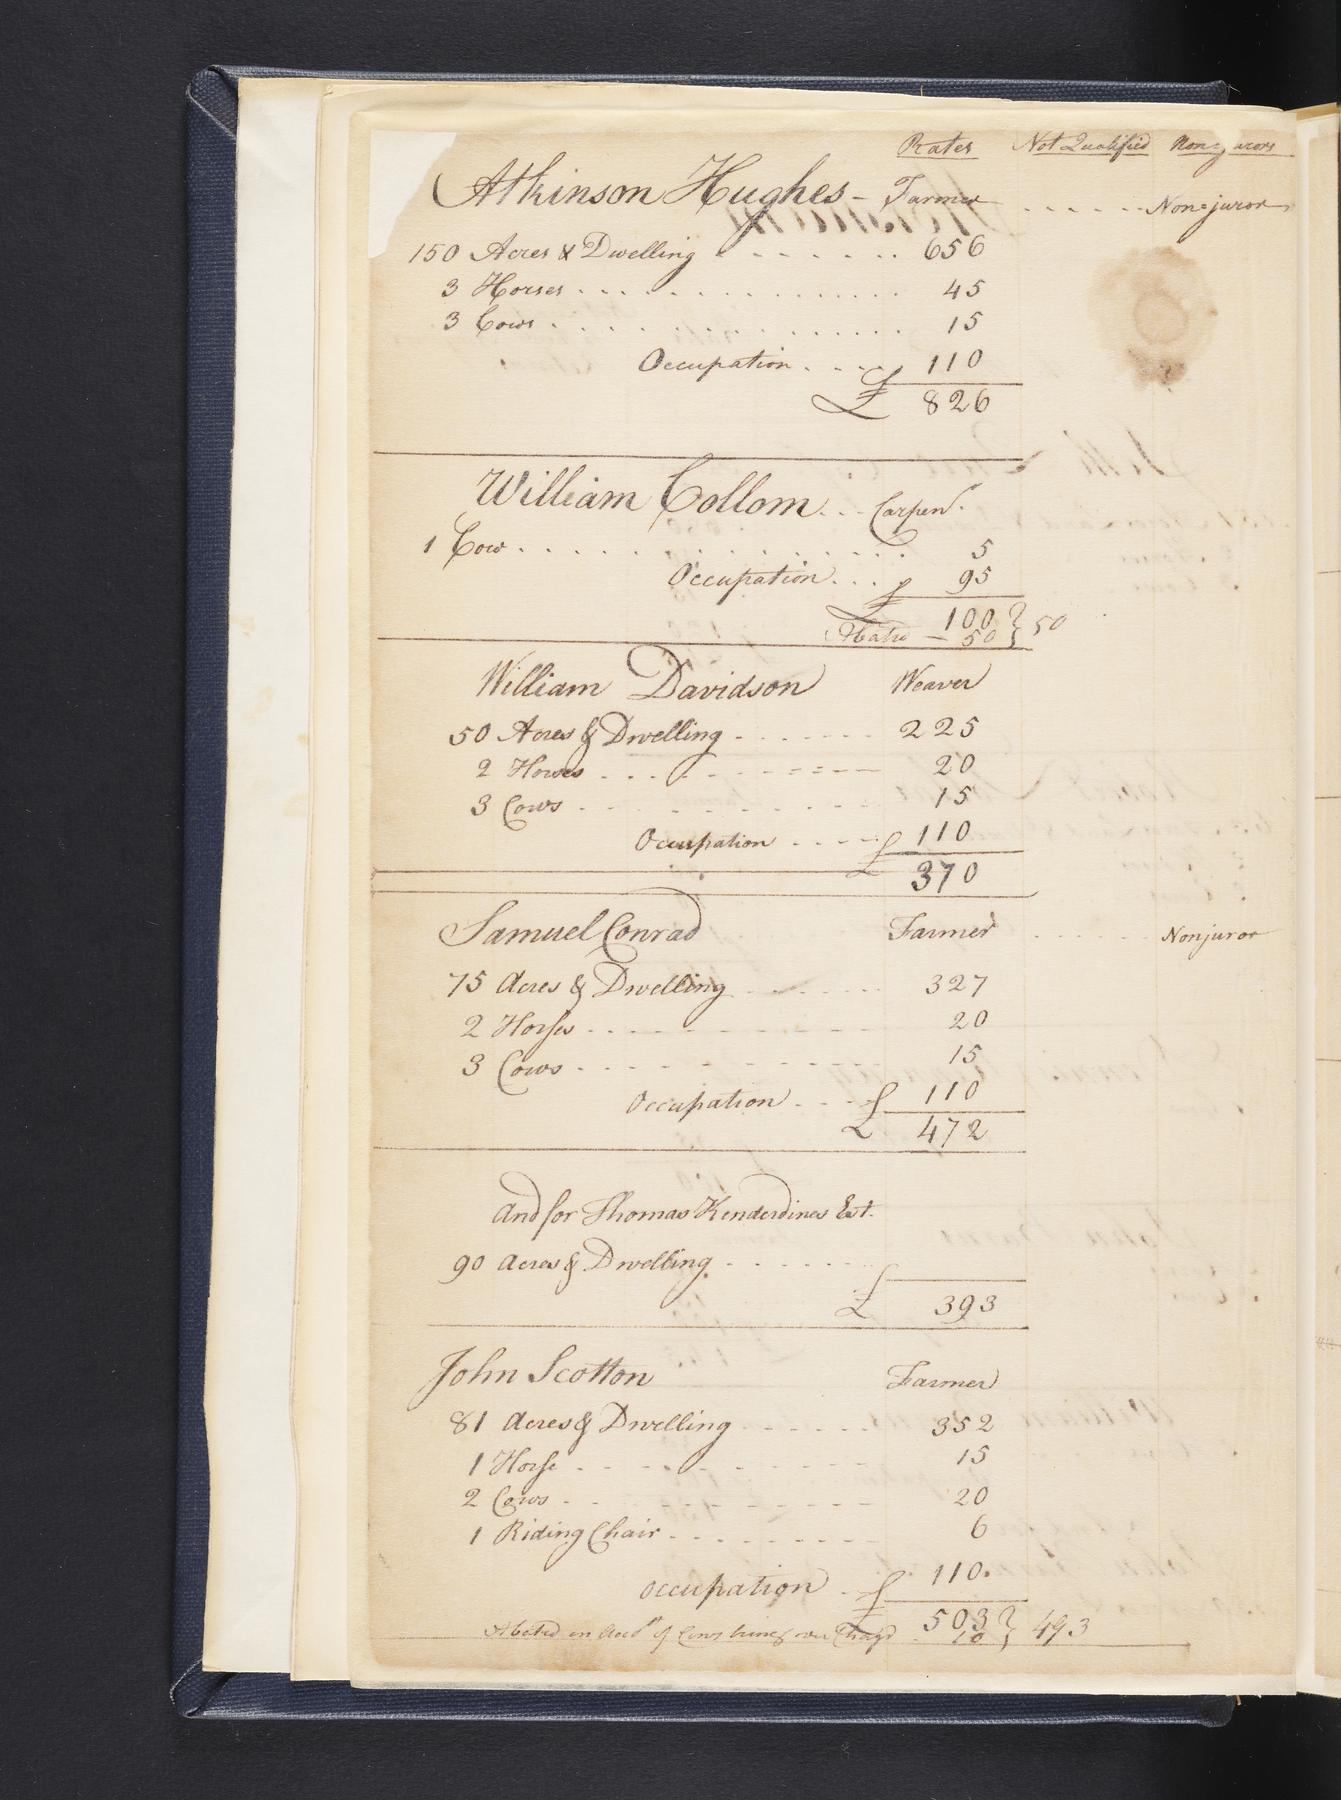 Rates Not Qualified Non-jurors
Atkinson Hughes - Farmer . . . . . Non=juror
150 Acres & Dwelling . . . . . . . 656
3 Horses . . . . . . . . . . . . . 45
3 Cows . . . . . . . . . . . . . . 15
Occupation . . . . 110
£ 826
William Collom . . . Carpenr.
1 Cow . . . . . . . . . . . . . . . 5
Occupation . . . 95
£ 100 } 50
Abate — 50
William Davidson Weaver
50 Acres & Dwelling . . . . . . . 225
2 Horses . . . . . . . . . 20
3 Cows . . . . . . . . . . 15
Occupation . . . . 110
£ 370
Samuel Conrad Farmer . . . . . . Nonjuror
75 Acres & Dwelling . . . . . . . 327
2 Horses . . . . . . . . . 20
3 Cows . . . . . . . . . . 15
Occupation . . . 110
£ 472
And for Thomas Kenderdines Est.
90 Acres & Dwelling . . . . . . .
£ 393
John Scotton Farmer
81 Acres & Dwelling . . . . . . 352
1 Horse . . . . . . . . . . 15
2 Cows . . . . . . . . . . 20
1 Riding Chair . . . . . . . . 6
occupation . 110.
£ 503 } 493
Abated on Acct of Cows being over Chargd 10